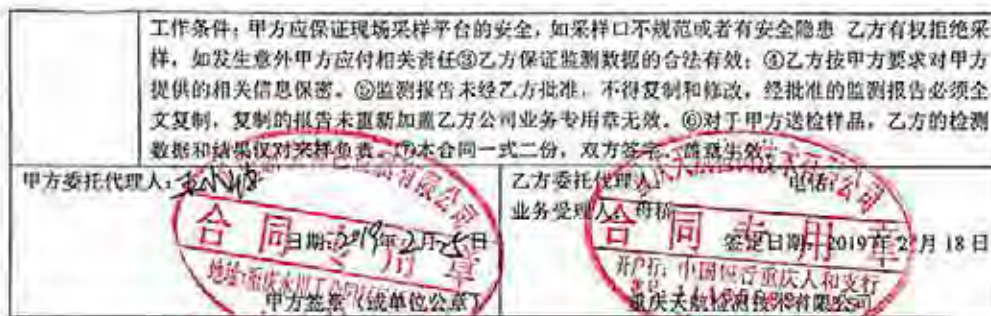 工作条件；甲方应保证现场采样平台的安全，如采样口不规范或者有安全隐患 乙方有权拒绝采
样，如发生意外甲方应付相关责任③乙方保证监测数据的合法有效；④乙方按甲方要求对甲方
提供的相关信息保密。⑤监测报告未经乙方批准，不得复制和修改，经批准的监测报告必须全
文复制，复制的报告未重新加盖乙方公司业务专用章无效。⑥对于甲方送检样品，乙方的检测
数据和结果仅对来样负责。⑦本合同一式二份，双方签字、盖章生效。
甲方委托代理人：
有限公司
合同专用章
日期：2019年2月25日
甲方签章（或单位公章）
乙方委托代理人： 电话：
业务受理人：
合同专用章
签定日期：2019年2月18日
开户行：中国银行重庆人和支行
重庆天航检测技术有限公司